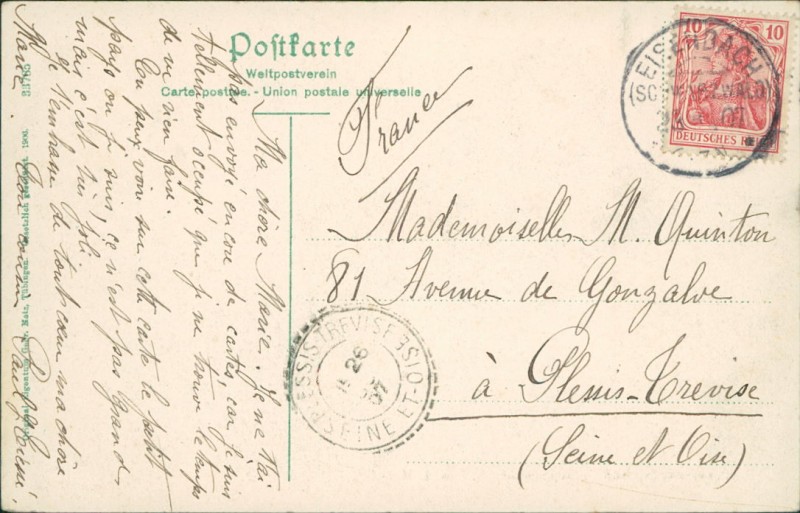 Postkarte
Weltpostverein
Carte postale. - Union postale universelle
France
10 10
DEUTSCHES REICH
EISENBACH
(SCHWARZWALD)
07
Mademoiselle M. Quinton
81 Avenue de Gonzalve
à Plessis-Trévise
(Seine et Oise)
PLESSIS TREVISE
26
07
SEINE-ET-OISE
Ma chère Marie. Je ne t'ai
pas envoyé encore de cartes, car je suis
tellement occupé que je ne trouve le temps
de ne rien faire.
Tu peux voir sur cette carte le petit
pays où je suis, ce n'est pas grand
mais c'est très joli.
Je t'embrasse de tout cœur ma chère
Marie. Ton cousin
33765
Gebr. Metz, Tübingen. Gesetzlich 1906.